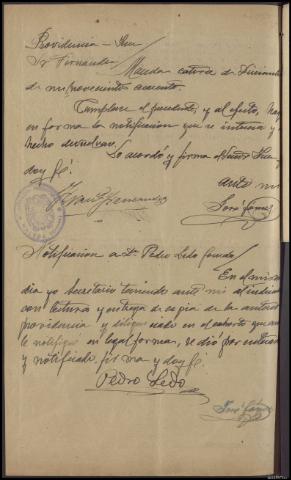 Providencia = Juez
Sr Fernandez
Manda catorce de Diciembre
de mil novecientos
Cumplase el precedente, y al efecto, hag
en forma la notificacion que se interesa y
hecho devuelvase.
Lo acordó y firma el Señor Juez
doy fé.
ante mi
José Gómez
Notificacion a D. Pedro Ledo
En el mismo
dia yo secretario teniendo ante mi al
con lectura y entrega de copia de la anterior
providencia y en el exhorto que
le notifique en legal forma, se dió por enterado
y notificado, firma y doy fé.
Pedro Ledo
José Gómez